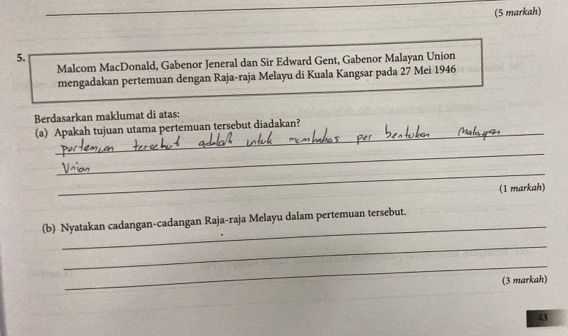 (5 markah)
5.
Malcom MacDonald, Gabenor Jeneral dan Sir Edward Gent, Gabenor Malayan Union
mengadakan pertemuan dengan Raja-raja Melayu di Kuala Kangsar pada 27 Mei 1946
Berdasarkan maklumat di atas:
(a) Apakah tujuan utama pertemuan tersebut diadakan?
pertemuan tersebut adalah untuk membahas per bentukan Malayan
Union
(1 markah)
(b) Nyatakan cadangan-cadangan Raja-raja Melayu dalam pertemuan tersebut.
(3 markah)
43